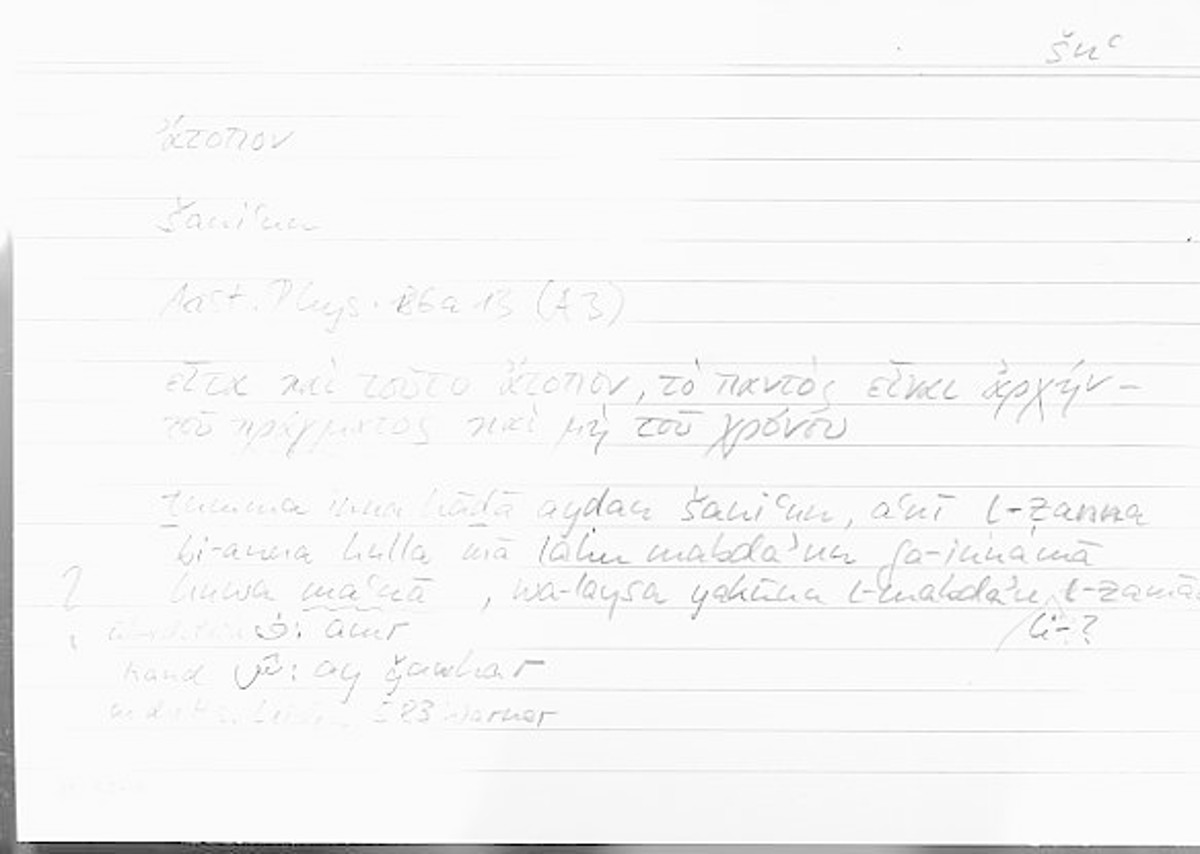 šnʿ
ἄτοπον
šaniʿun
Arist. Phys. 186a 13 (A3)
εἶτα καὶ τοῦτο ἄτοπον, τὸ παντὸς εἶναι ἀρχήν –
τοῦ πράγματος καὶ μὴ τοῦ χρόνου
ṯumma inna hāḏā ayḍan šaniʿun, aʿnī l-ẓanna
bi-anna kulla mā lahu mabdaʾun fa-innamā
? huwa maʿnā , wa-laysa yakūna l-mabdaʾu l-zamā
: amr li-?
hand : ay ǧawhar
Warner